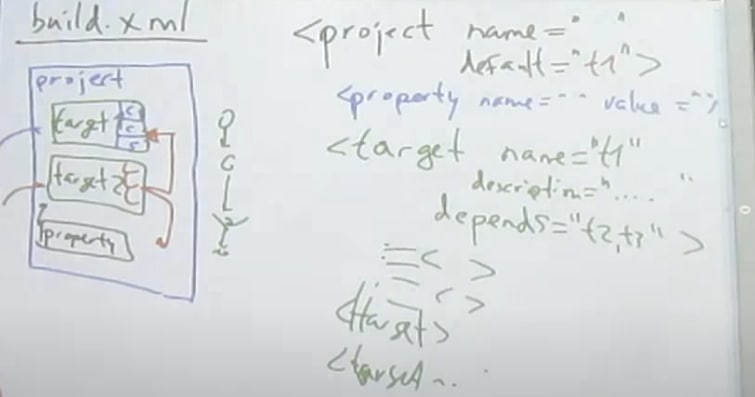 build.xml
project
target 1
c
c
c
target 2
property
<project name=" "
default="t1">
<property name="" value=""/>
<target name="t1"
description=".... "
depends="t2,t3" >
< >
< >
</target>
<target ...